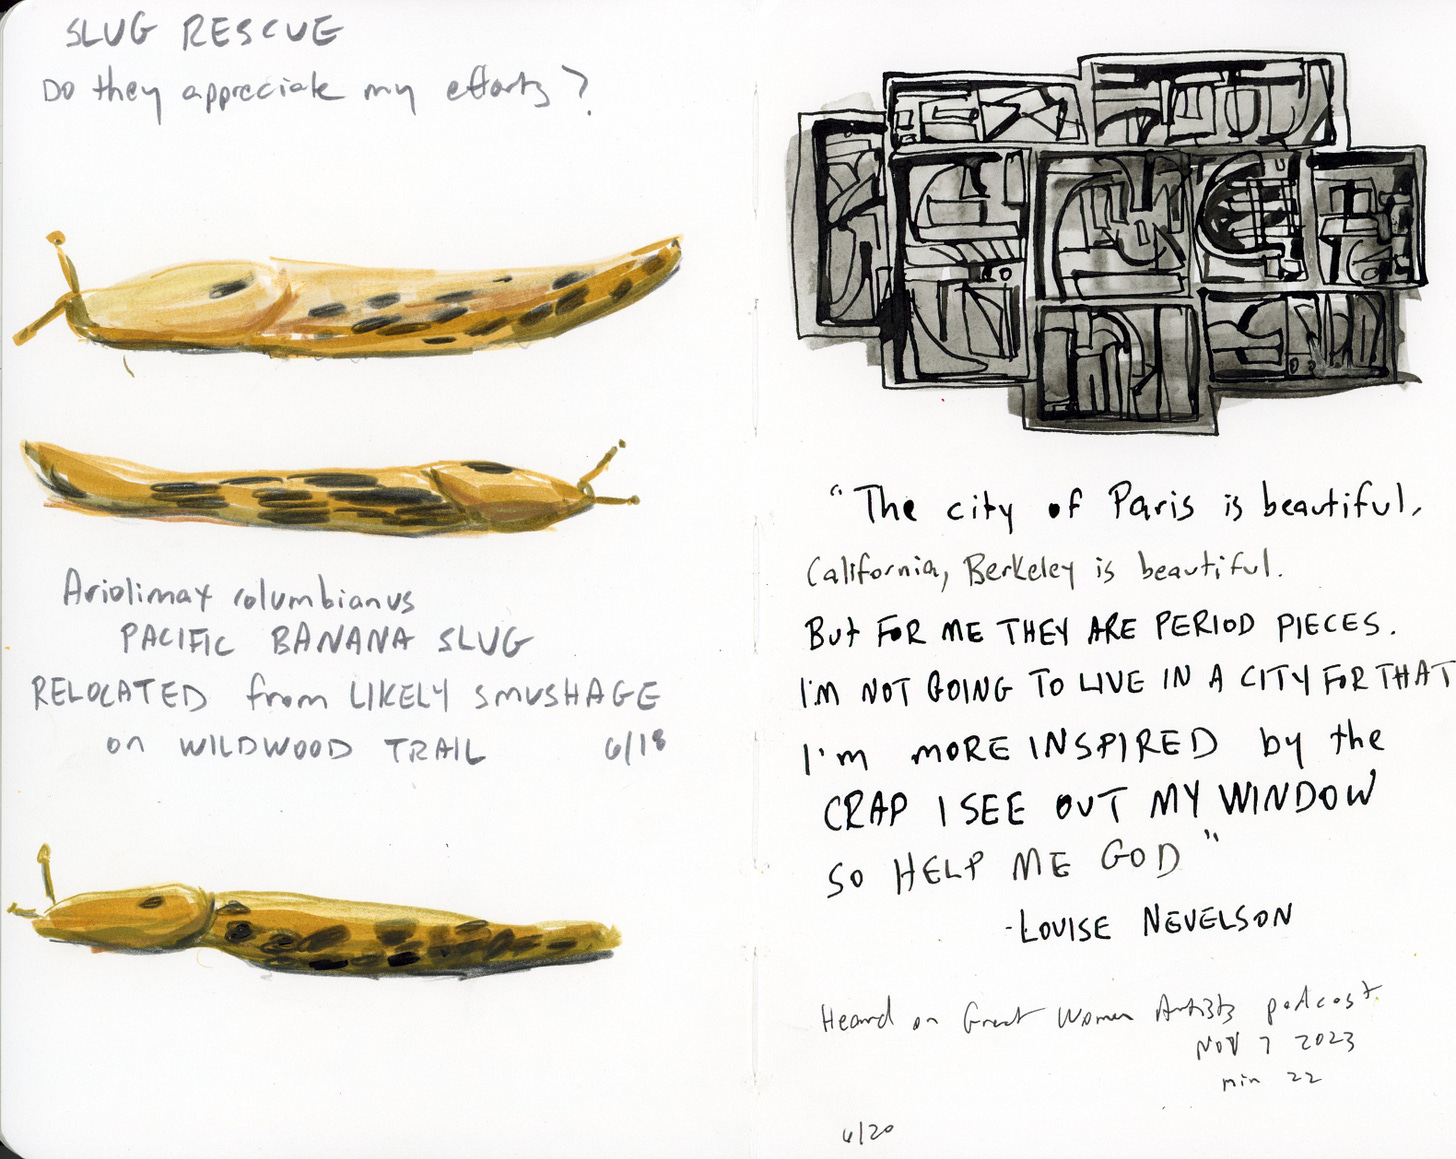 SLUG RESCUE
Do they appreciate my efforts?
Ariolimax columbianus
PACIFIC BANANA SLUG
RELOCATED from LIKELY SMUSHAGE
on WILDWOOD TRAIL 6/18
"The city of Paris is beautiful,
California, Berkeley is beautiful.
But FOR ME THEY ARE PERIOD PIECES.
I'M NOT GOING TO LIVE IN A CITY FOR THAT
I'm MORE INSPIRED by the
CRAP I SEE OUT MY WINDOW
SO HELP ME GOD"
-LOUISE NEVELSON
Heard on Great Women Artists podcast
NOV 7 2023
min 22
6/20